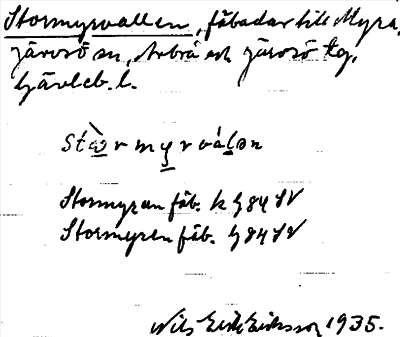 Stormyrvallen, fäbodar till Myra,
Järvsö sn, Arbrå och Järvsö tg,
Gävleb. l.
Stormyran fäb. k G84 SV
Stormyren fäb. G84 SV
Nils Erik Eriksson 1935.